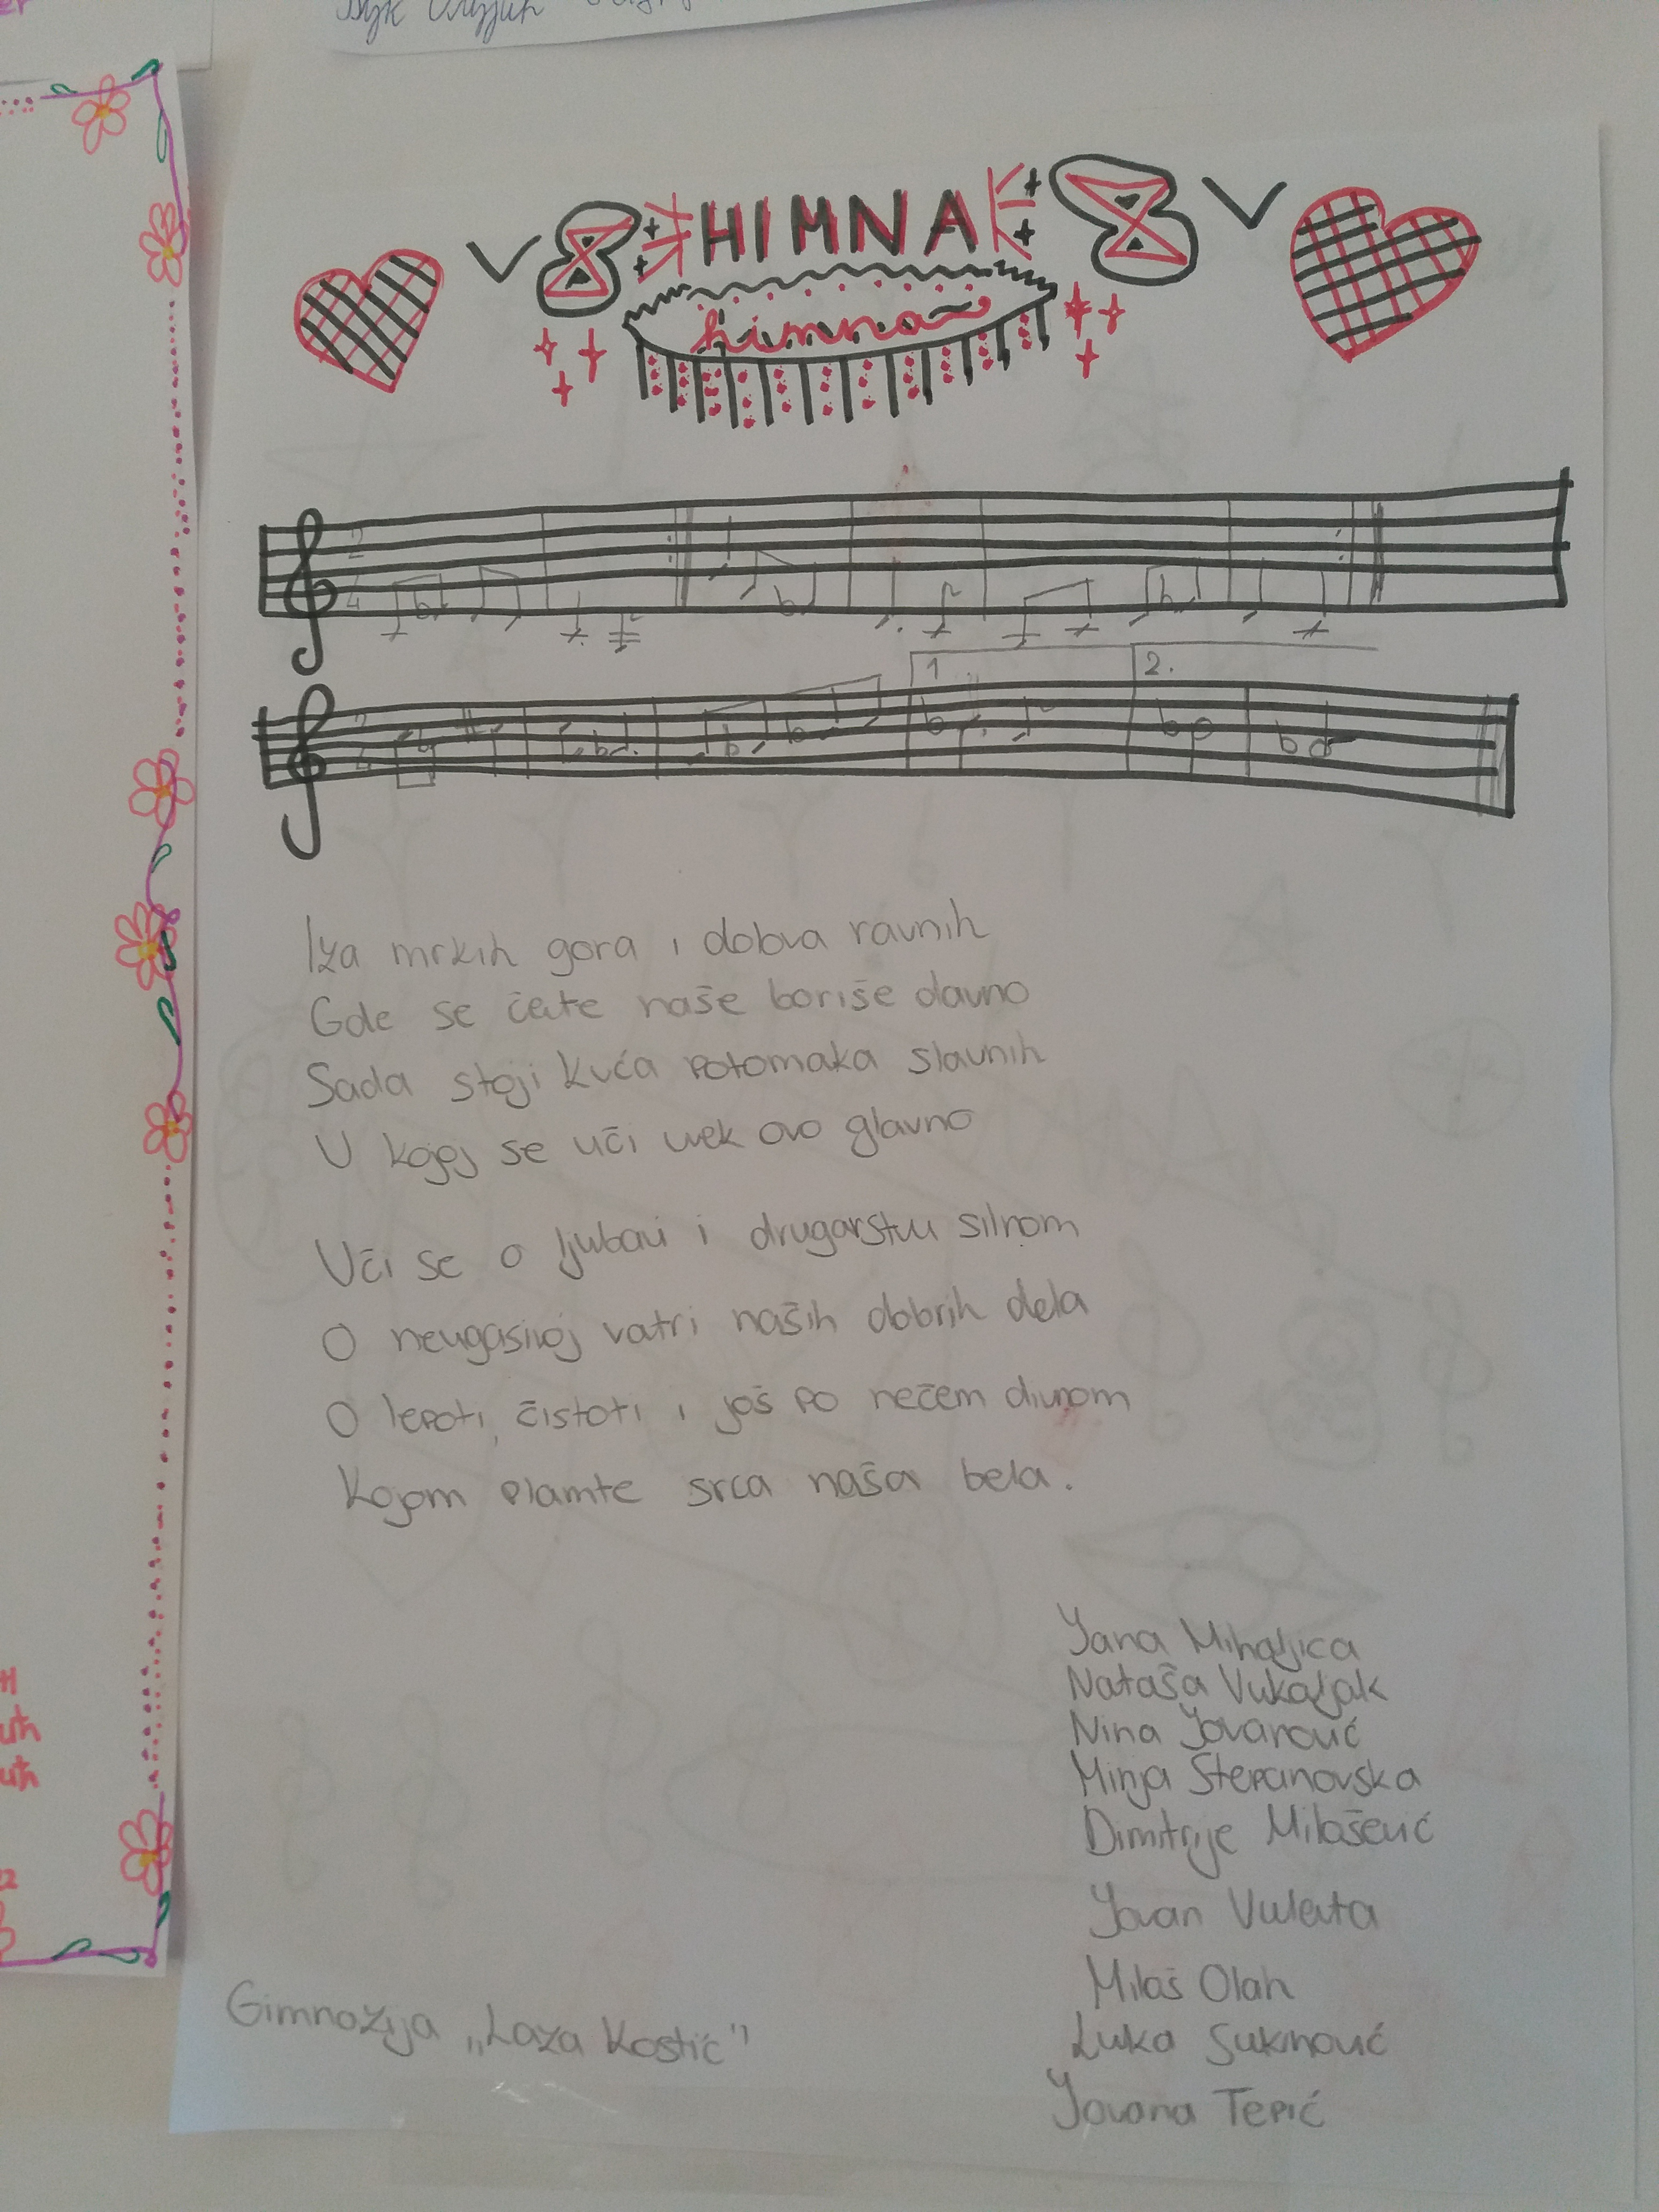 HIMNA
himna
2
4
2
4
1
2.
Iza mrkih gora i dolova ravnih
Gde se čete naše boriše davno
Sada stoji kuća potomaka slavnih
U kojoj se uči uvek ovo glavno
Uči se o ljubavi i drugarstvu silnom
O neugasivoj vatri naših dobrih dela
O lepoti, čistoti i još po nečem divnom
Kojom plamte srca naša bela.
Jana Mihaljica
Nataša Vukaljak
Nina Jovanović
Minja Stepanovska
Dimitrije Milošević
Jovan Vuleta
Miloš Olah
Luka
Jovana Tepić
Gimnazija „Laza Kostić"